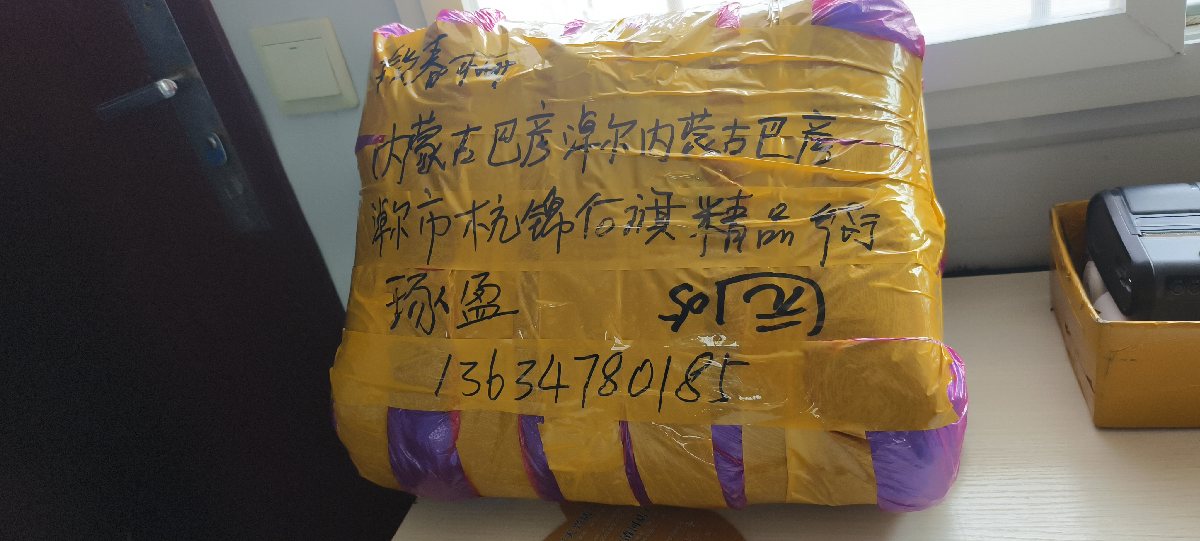 内蒙古巴彦淖尔内蒙古巴彦
淖尔市杭锦后旗精品街
琢盈
13634780185